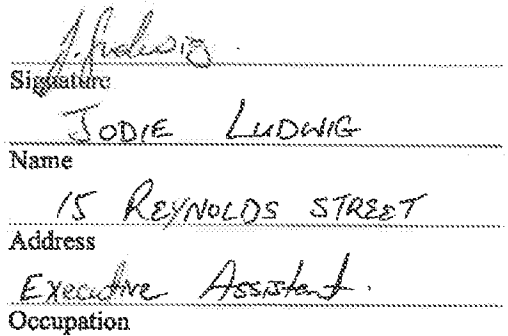 J. Ludwig.
Signature
JODIE LUDWIG
Name
15 REYNOLDS STREET
Address
Executive Assistant.
Occupation